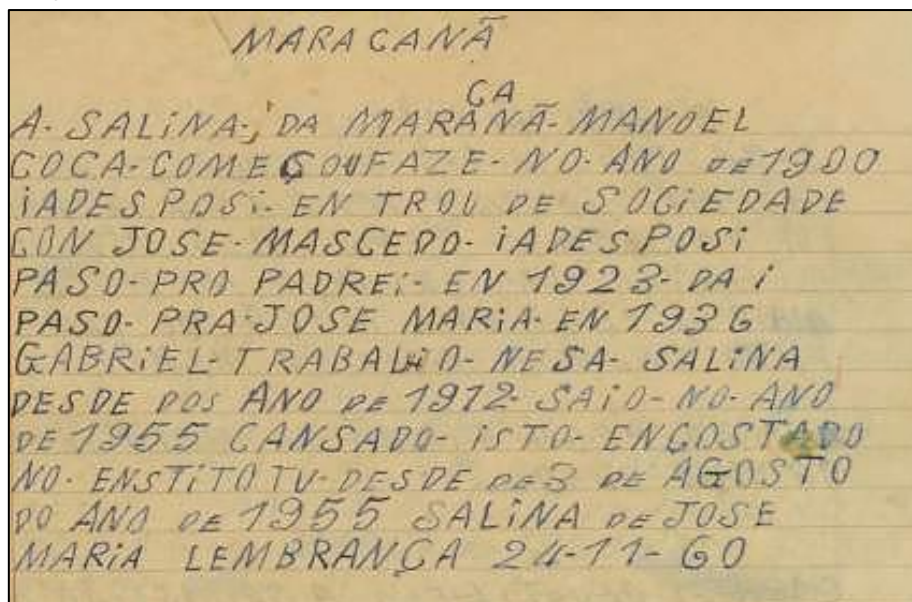 MARACANÃ
CA
A- SALiNA-, DA MARANÃ- MANOEL
COCA- COMEÇOUFAZE- NO- ANO DE 1900
iADESPOSi- EN TROU DE SOCiEDADE
CON JOSE- MASCEDO- iADESPOSi
PASO- PRO PADREi- EN 1923- DA i
PASO- PRA- JOSE MARiA- EN 1936
GABRiEL- TRABALIO- NESA- SALiNA
DESDE DOS ANO DE 1912- SAiO- NO- ANO
DE 1955 CANSADO- iSTO- ENCOSTADO
NO- ENSTiTOTU- DESDE DE 3 DE AGOSTO
DO ANO DE 1955 SALiNA DE JOSE
MARiA LEMBRANÇA 24-11-60